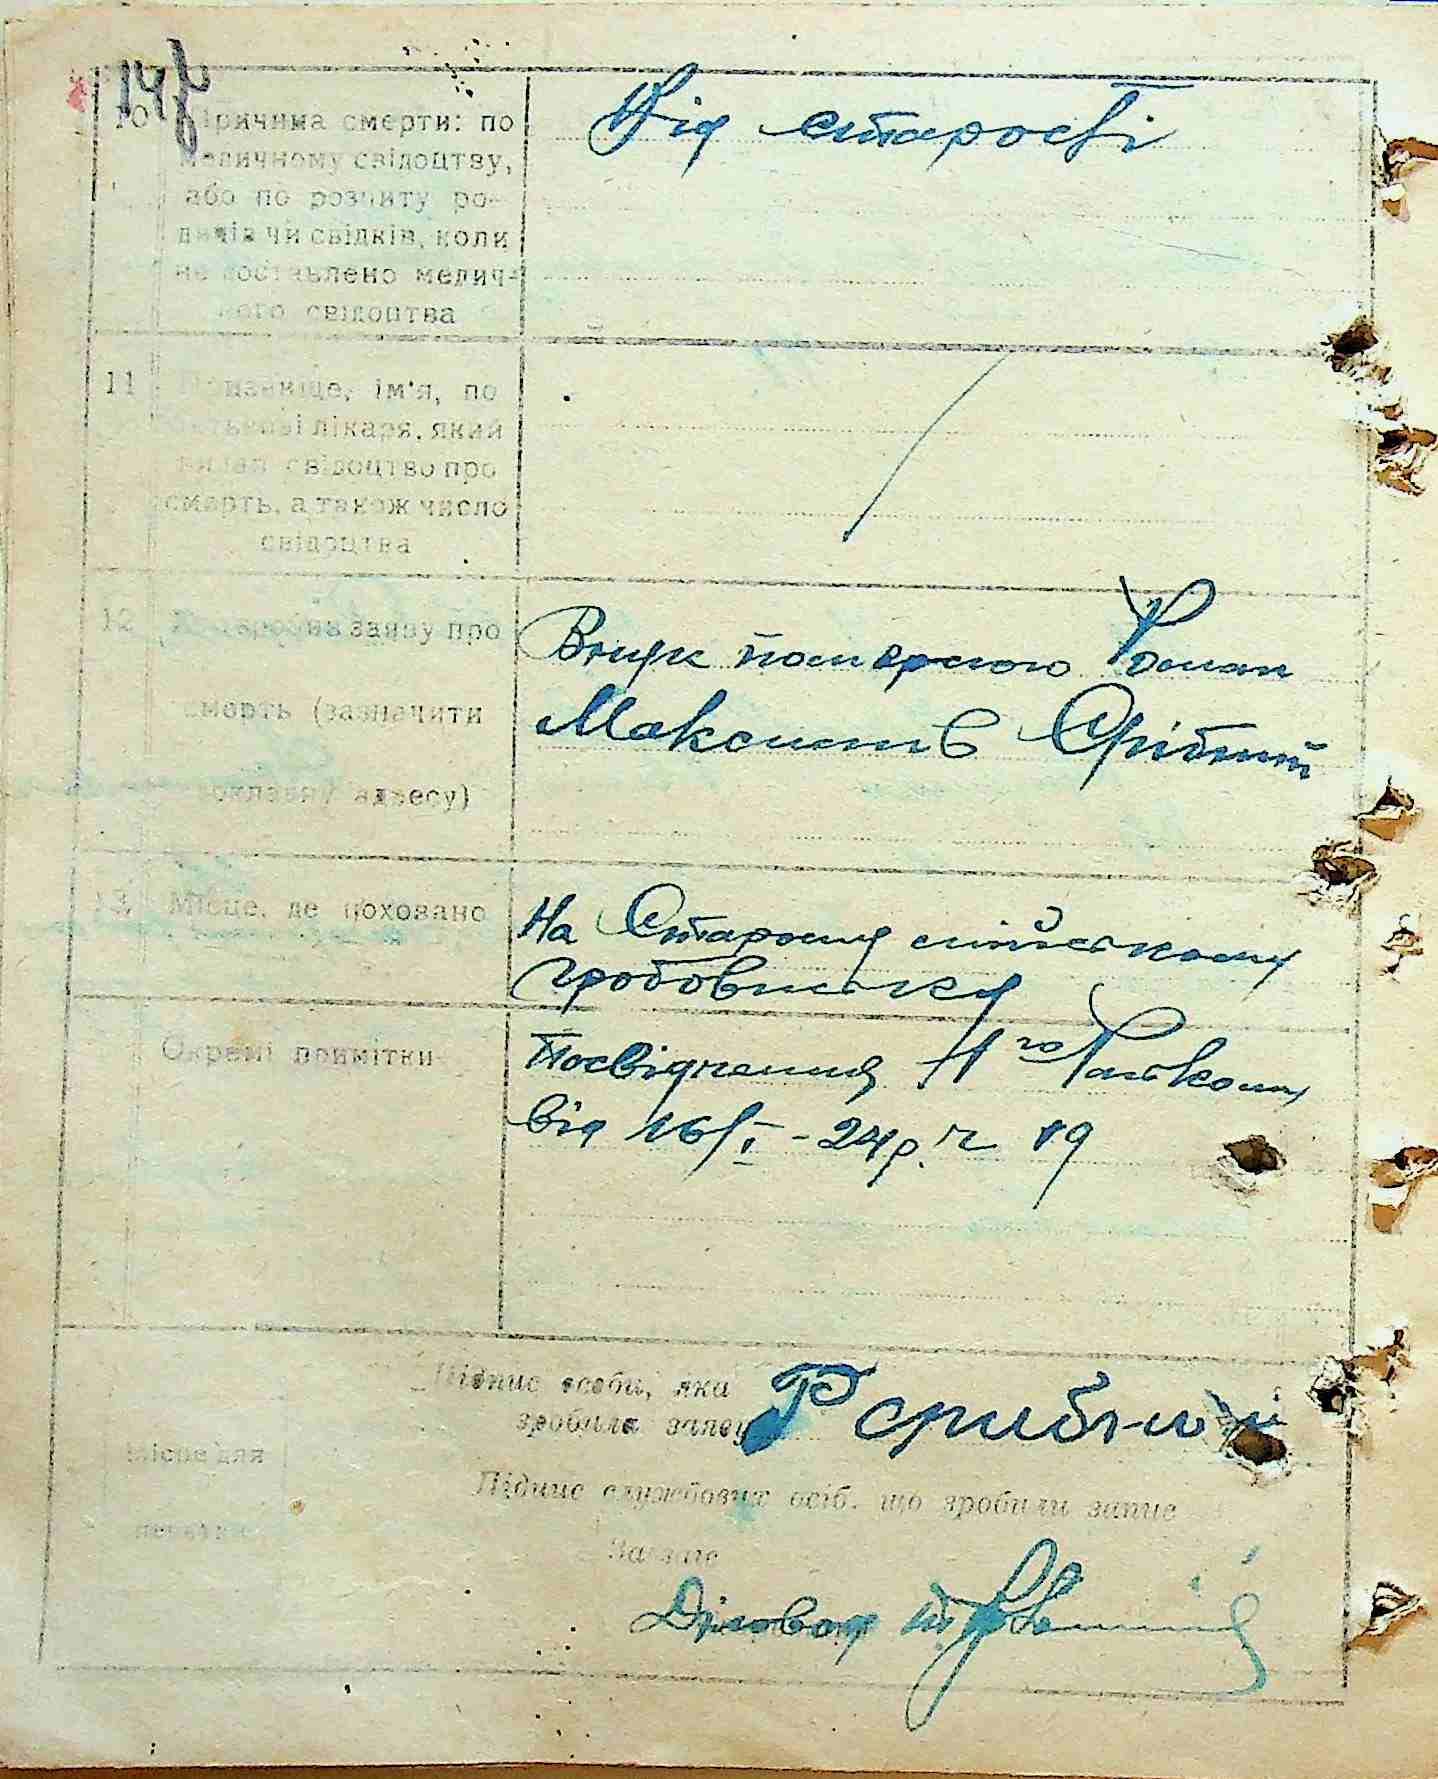 10 Причина смерти: по
медичному свідоцтву,
або по розпиту ро-
дичів чи свідків, коли
не доставлено медич-
ного свідоцтва
Від старості
11 Призвіще, ім'я, по
батькові лікаря, який
видав свідоцтво про
смерть, а також число
свідоцтва
12 заяву про
смерть (зазначити
докладну адресу)
Внук померлого Роман
Максимів Срібний
13. Місце, де поховано
На Старому мійському
гробовиську
Окремі примітки
Посвідчення 1го Райкому
від 16/I - 24 р. ч 19
Підпис особи, яка
зробила заяву
Р Срибний
Місце для
печатки
Підпис службових осіб, що зробили запис
Завзагс
Діловод